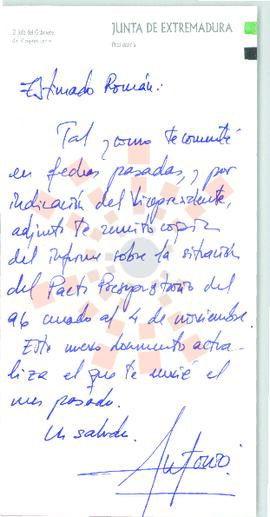 El Jefe del Gabinete
del Vicepresidente
JUNTA DE EXTREMADURA
Presidencia
Estimado Román:
Tal y como te comuniqué
en fechas pasadas, y por
indicación del Vicepresidente,
adjunto te remito copia
del informe sobre la situación
del Pacto Presupuestario del
96 cerrado al 4 de noviembre.
Este nuevo documento actua-
liza el que te envié el
mes pasado.
Un saludo.
Antonio